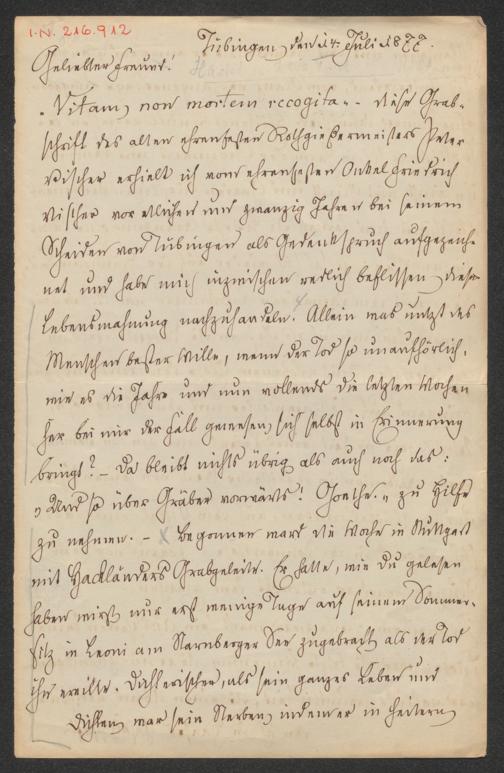 I.N. 216.912
Tübingen, den 14. Juli 1877.
Geliebter Freund!
„Vitam, non mortem recogita" – diese Grab-
schrift des alten ehrenfesten Rothgießermeisters Peter
Vischer erhielt ich vom ehrenfesten Onkel Friedrich
Vischer vor etlichen und zwanzig Jahren bei seinem
Scheiden von Tübingen als Gedenkspruch aufgezeich-
net und habe mich inzwischen redlich beflissen, dieser
Lebensmahnung nachzuhandeln. Allein was nützt des
Menschen bester Wille, wenn der Tod so unaufhörlich,
wie es die Jahre und nun vollends die letzten Wochen
her bei mir der Fall gewesen, sich selbst in Erinnerung
bringt? – Da bleibt nichts übrig als auch noch das:
„Und so über Gräber vorwärts! Goethe." zu Hilfe
zu nehmen. – Begonnen ward die Woche in Stuttgart
mit Hackländers Grabgeleite. Er hatte, wie Du gelesen
haben wirst, nur erst wenige Tage auf seinem Sommer-
sitz in Leoni am Starnberger See zugebracht als der Tod
ihn ereilte. Dichterischer, als sein ganzes Leben und
Dichten, war sein Sterben, indem er in heiterm